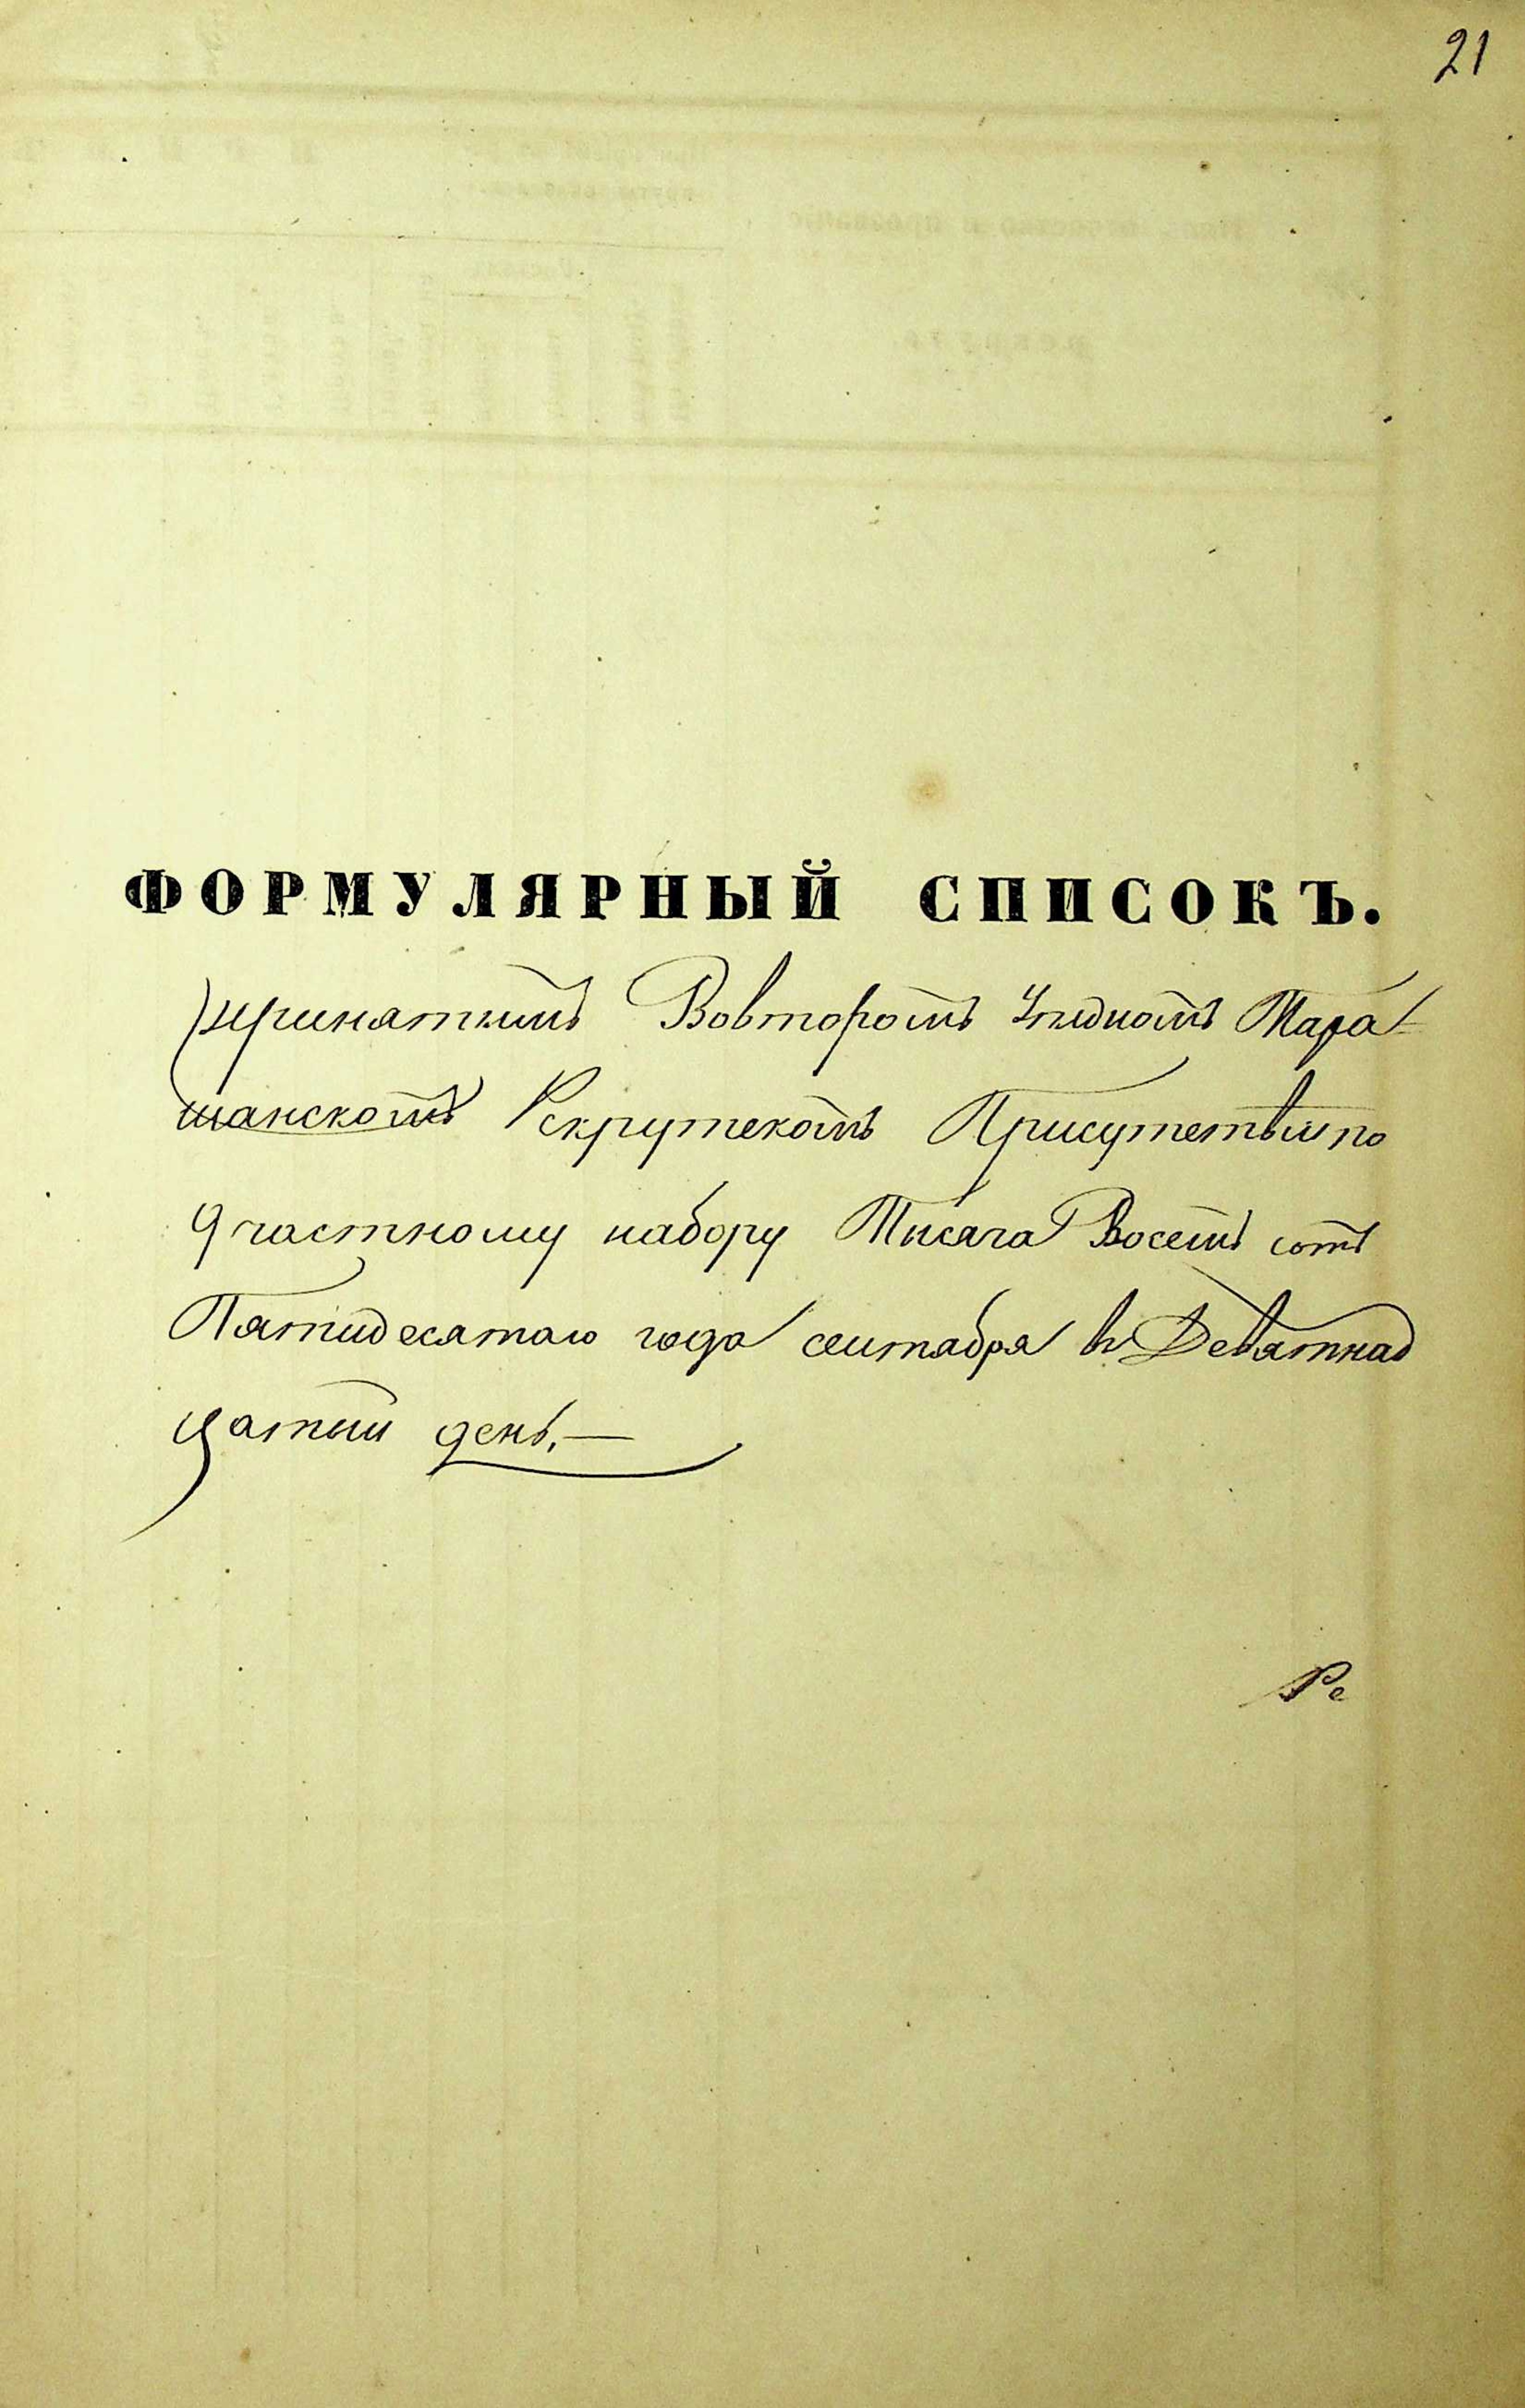 21
ФОРМУЛЯРНЫЙ СПИСОКЪ.
принятымъ Вовторомъ Уѣздномъ Тара-
щанскомъ Рекрутскомъ Присутствіи по
9 частному набору Тисяча Восемъ сотъ
Пятидесятаго года сентября в Девятнад
цятый день.—
Ре